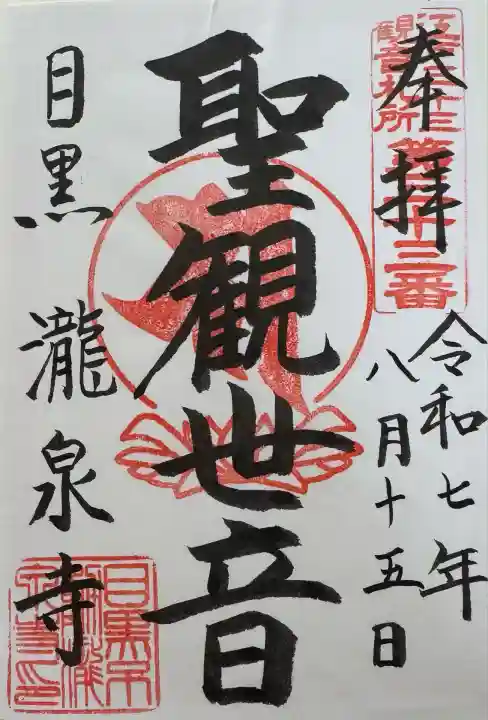 奉拝
江戸三十三
観音札所
第三十三番
令和七年
八月十五日
聖観世音
目黒 瀧泉寺